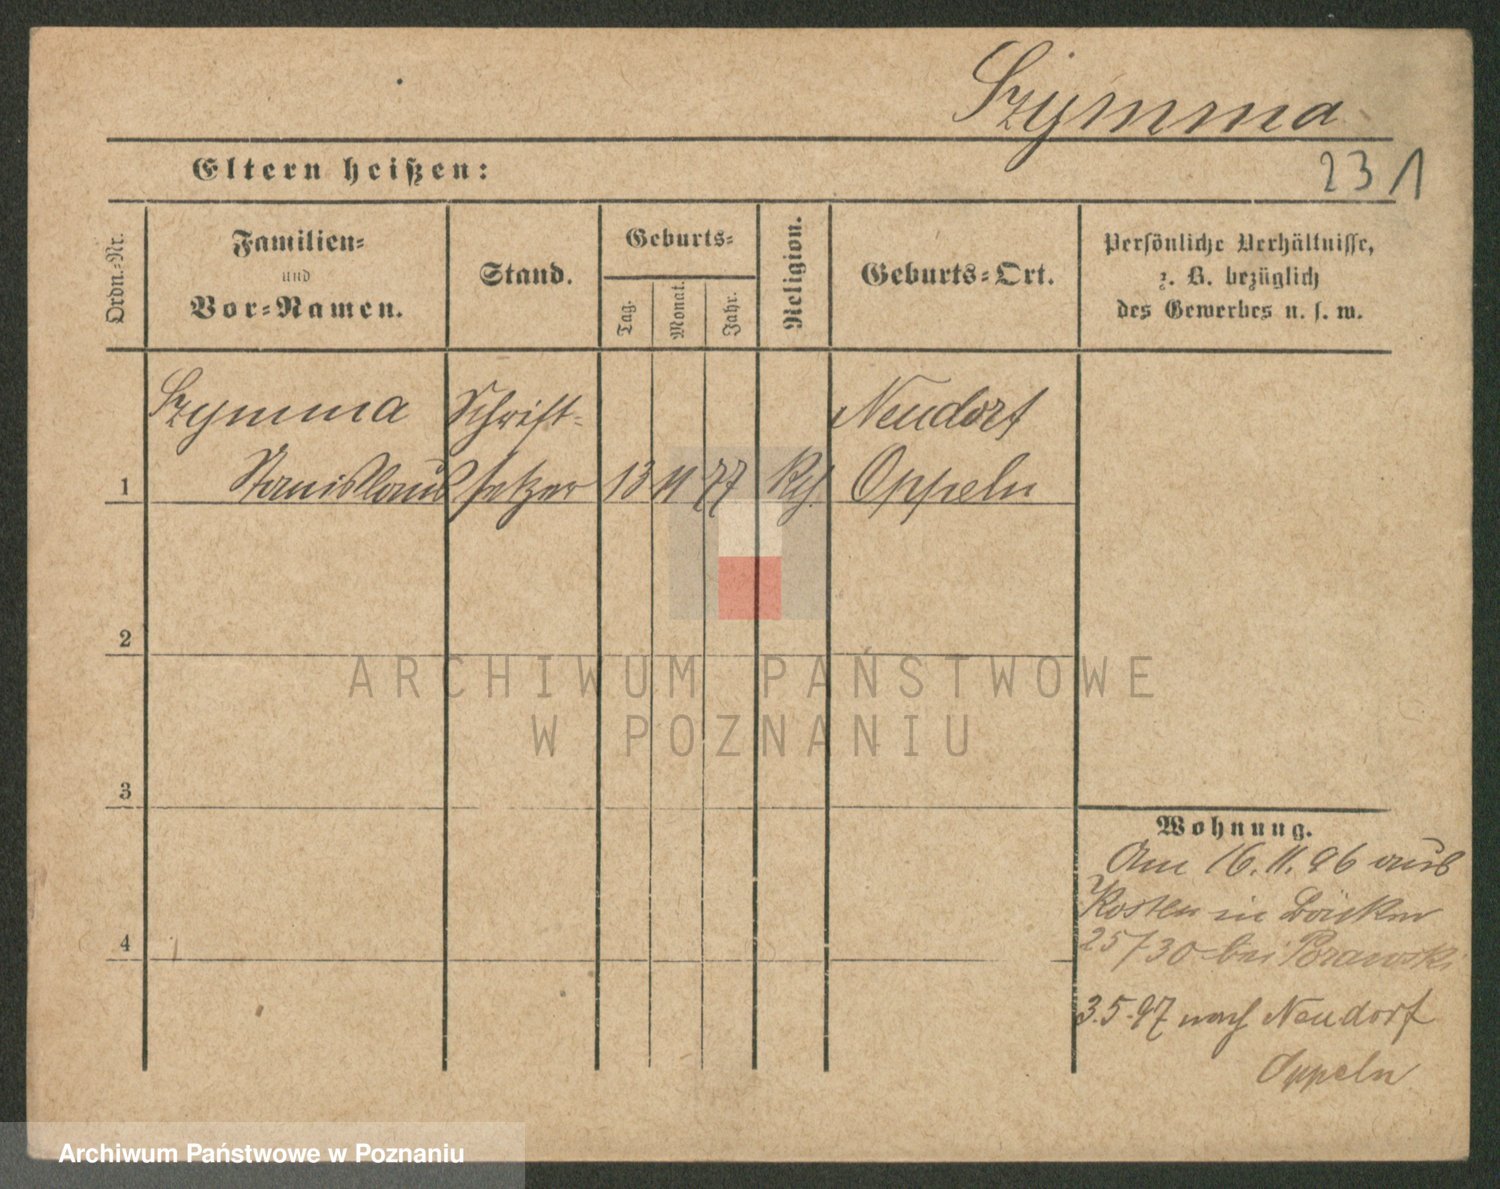 Szymma
231
Eltern heißen:
Ordn.-Nr.
Familien-
und
Vor-Namen.
Stand.
Geburts-
Tag.
Monat.
Jahr.
Religion.
Geburts-Ort.
Persönliche Verhältnisse,
z. B. bezüglich
des Gewerbes u. s. w.
Szymma Schrift- Neudorf
1 Stanislaus setzer 13 11 77 Oppeln
2
ARCHIWUM PAŃSTWOWE
W POZNANIU
3
Wohnung.
Am 16.11.96 aus
Kosten in
4
25/30 bei
3.5.97 nach Neudorf
Oppeln
Archiwum Państwowe w Poznaniu